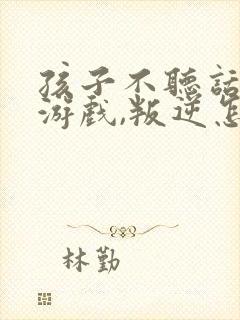 孩子不聽話
游戲,叛逆怎
林勤